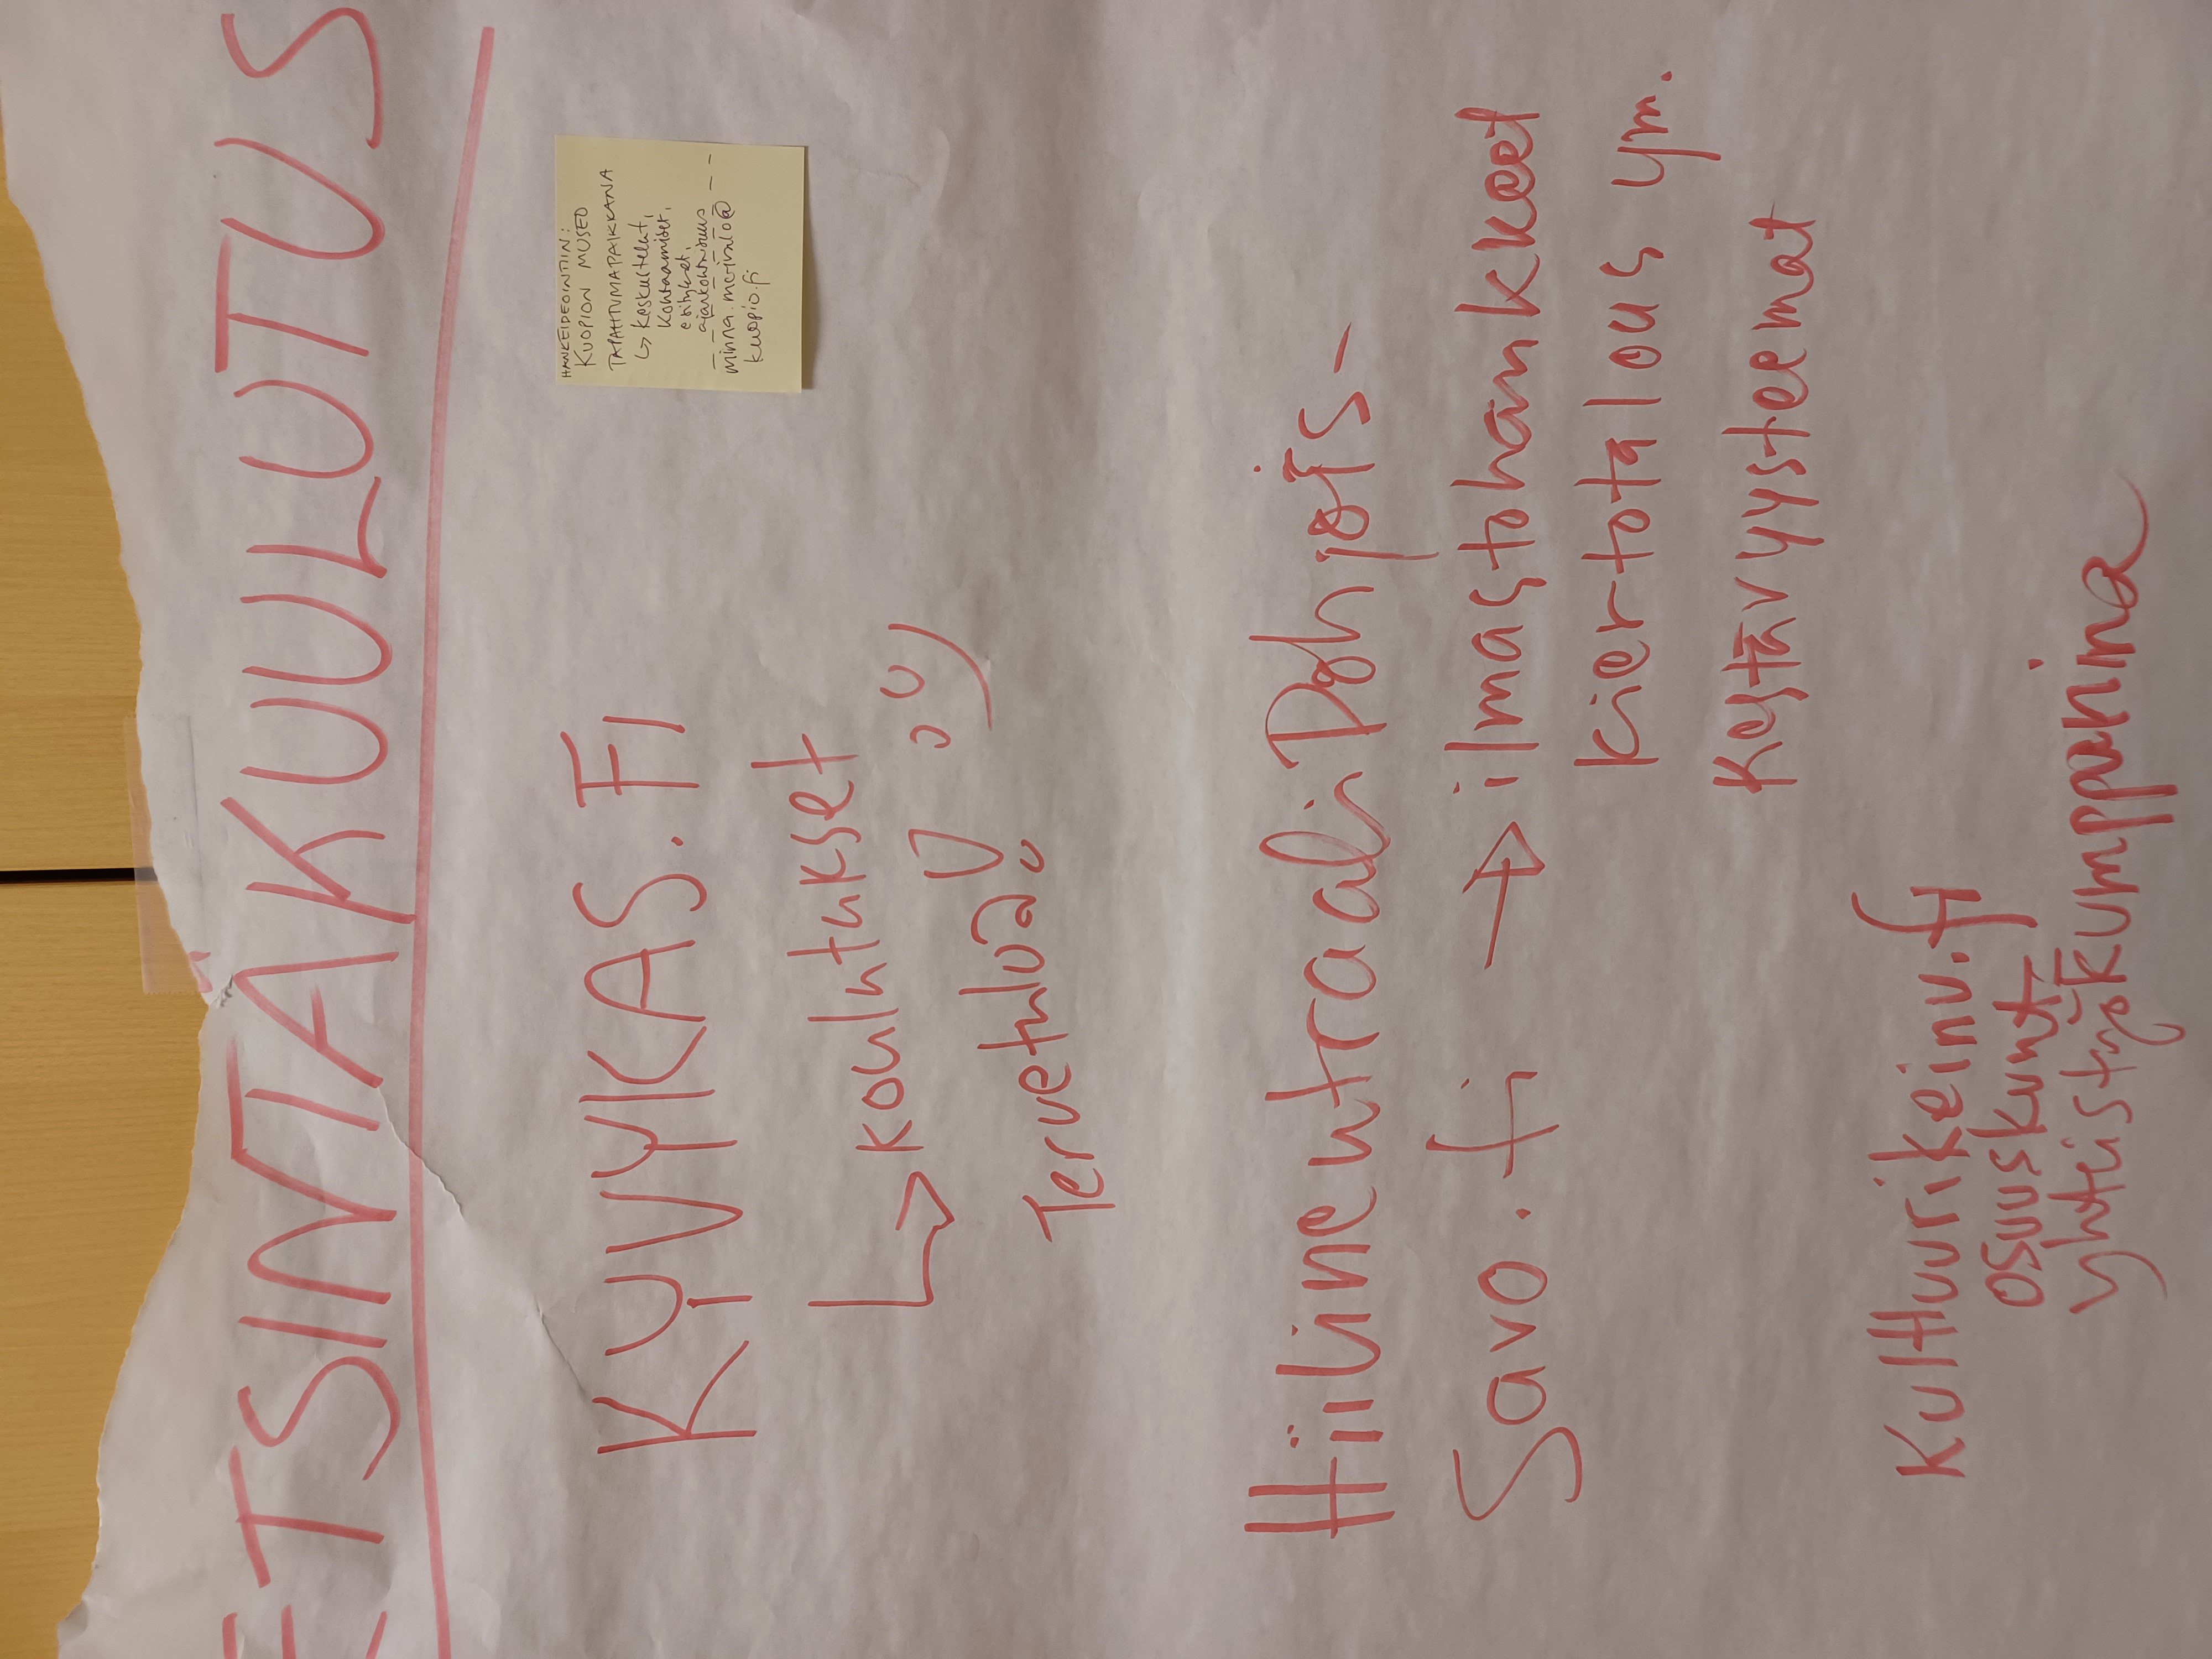 ETSINTÄKUULUTUS
HANKEIDEOINTIIN:
KUOPION MUSEO
TAPAHTUMAPAIKKANA
↳ keskustelut,
kohtaamiset,
esitykset,
ajankohtaisuus
minna.
kuopio.fi
KYVYKÄS.FI
↳ koulutukset
Tervetuloa
Hiilineutraali Pohjois-
Savo.fi → ilmastohankkeet
kiertotalous ym.
Kestävyysteemat
Kulttuurikeinu.fi
osuuskunta
yhteistyökumppanina